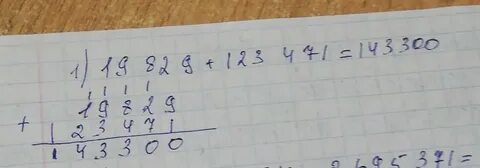 1) 19 829 + 123 471 = 143300
1 1 1 1
19829
+
123471
143300
695 371 =